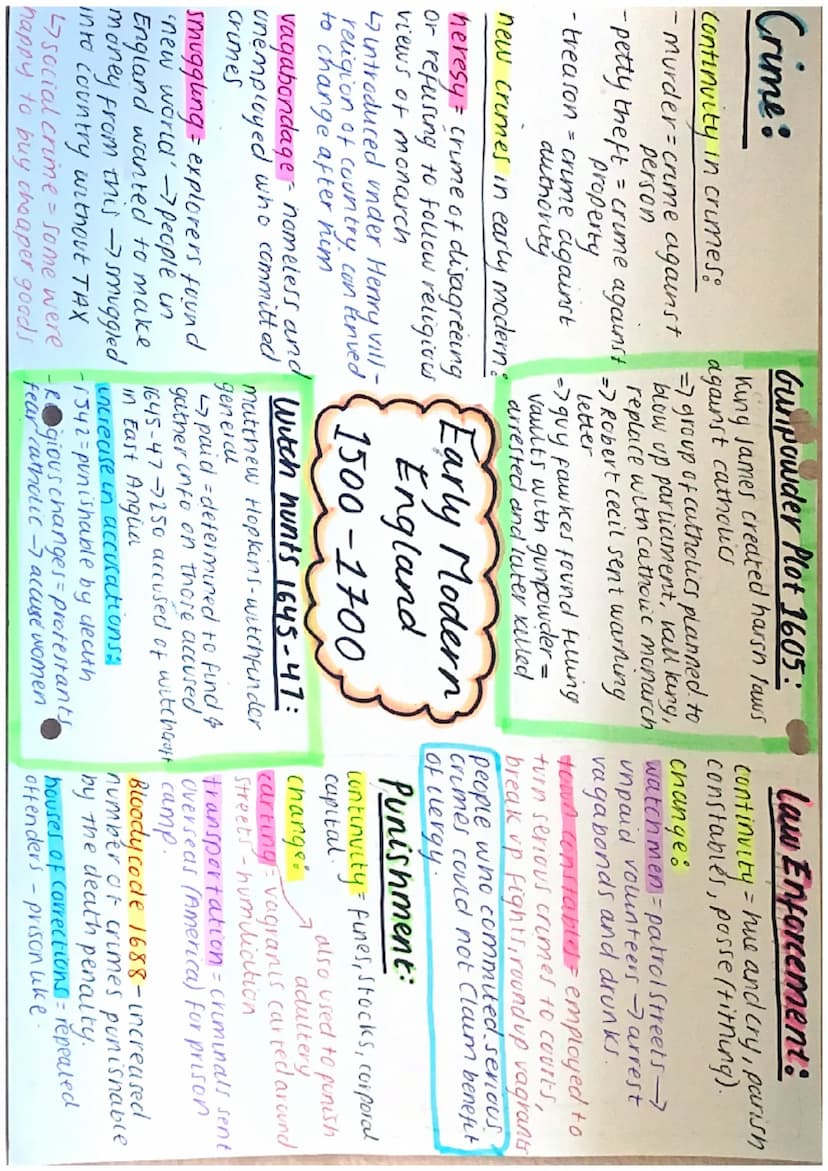 Crime:
continuity in crimes:
- murder = crime against
person
- petty theft = crime against
property
- treason = crime against
authority
new crimes in early modern:
heresy = crime of disagreeing
or refusing to follow religious
views of monarch
↳ introduced under Henry VIII -
religion of country continued
to change after him
vagabondage - homeless and
unemployed who committed
crimes
smuggling = explorers found
'new world' → people in
England wanted to make
money from this → smuggled
into country without TAX
↳ social crime = some were
happy to buy cheaper goods
Gunpowder Plot 1605:
King James created harsh laws
against catholics
⇒ group of catholics planned to
blow up parliament, kill king,
replace with catholic monarch
⇒ Robert cecil sent warning
letter
⇒ guy fawkes found filling
vaults with gunpowder =
arrested and later killed
Early Modern
England
1500 - 1700
Witch hunts 1645-47:
matthew Hopkins - witchfinder
general
↳ paid = determined to find &
gather info on those accused
1645-47 → 250 accused of witchcraft
in East Anglia
increase in accusations:
- 1542 = punishable by death
gious changes = protestants
fear catholic → accuse women
Law Enforcement:
continuity = hue and cry, parish
constables, posse (tithing).
change:
watchmen = patrol streets →
unpaid volunteers → arrest
vagabonds and drunks.
town constables = employed to
turn serious crimes to courts,
break up fights, round up vagrants
people who commited serious
crimes could not claim benefit
of clergy.
Punishment:
continuity = fines, stocks, corporal
capital.
change:
→ also used to punish
adultery
carting = vagrants carted around
streets - humiliation
transportation = criminals sent
overseas (America) for prison
camp
Bloody code 1688 - increased
number of crimes punishable
by the death penalty.
houses of corrections = repeated
offenders - prison like.